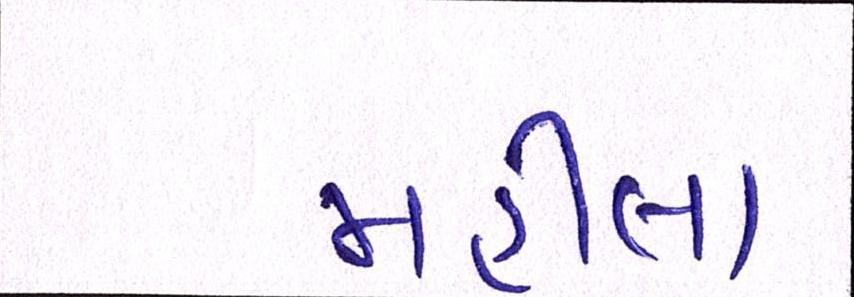 મહીલા